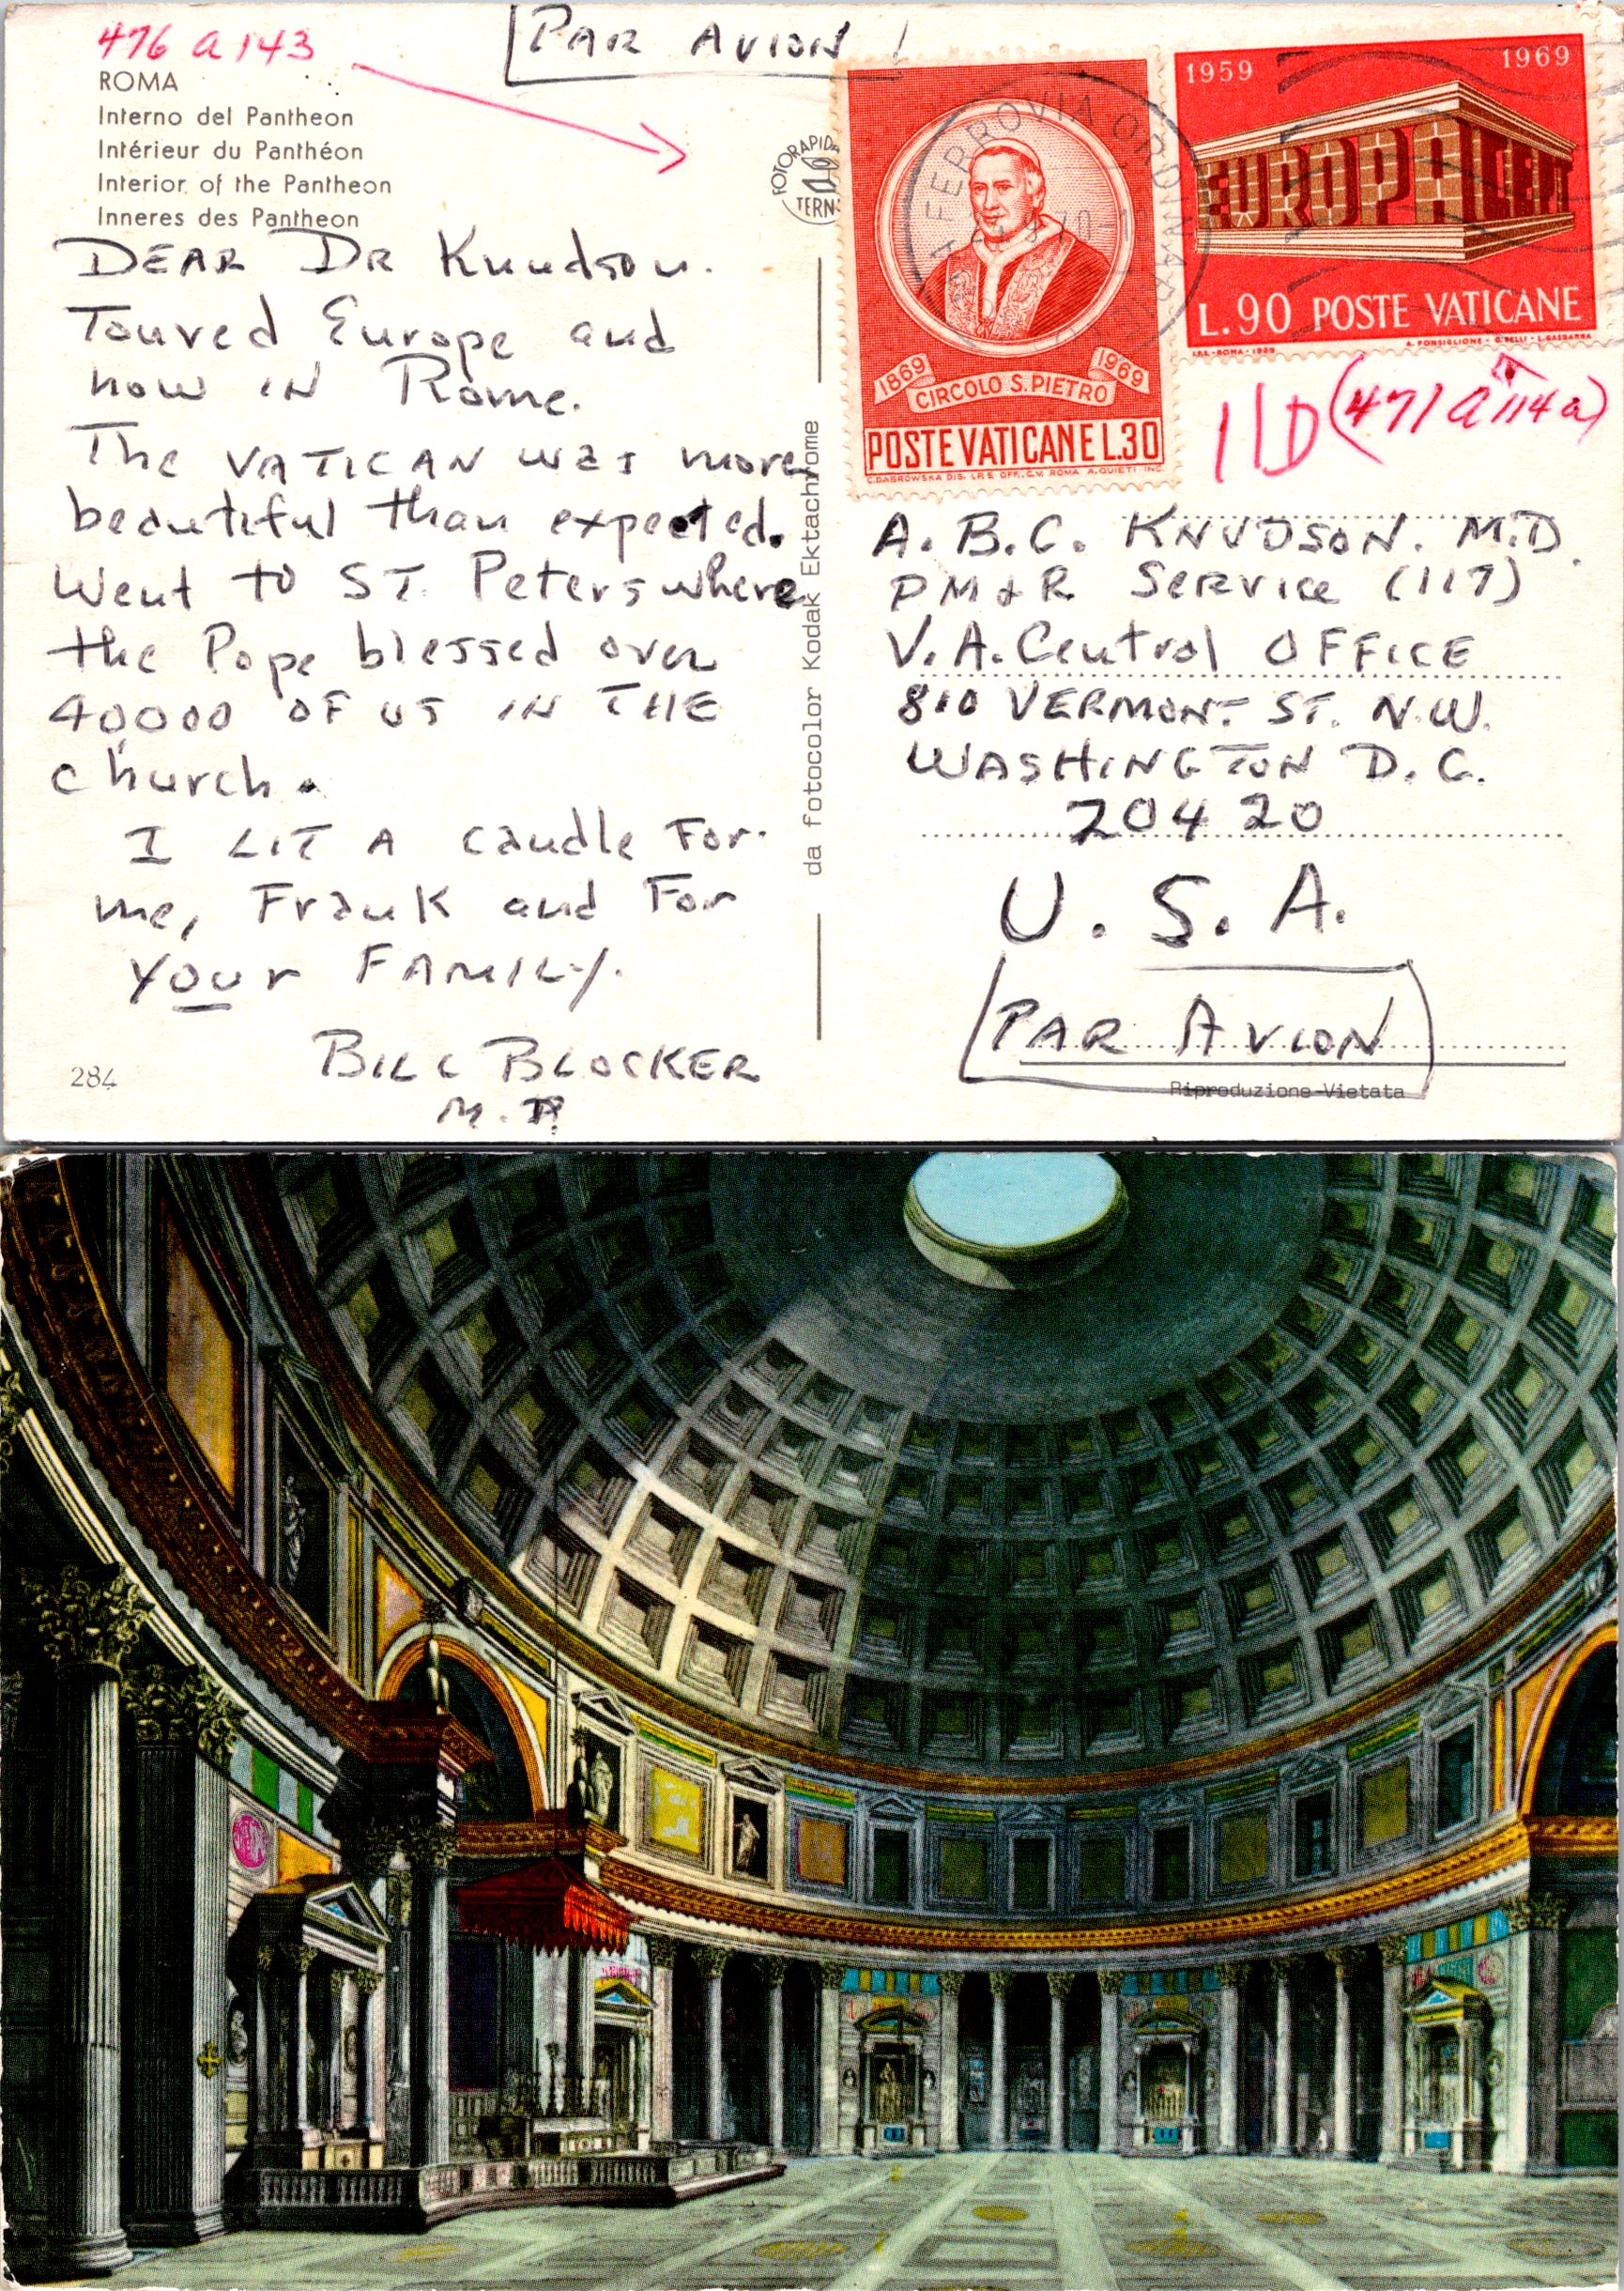 476 a 143
[PAR AVION!
ROMA
Interno del Pantheon
Intérieur du Panthéon
Interior of the Pantheon
Inneres des Pantheon
DEAR DR Knudson.
Toured Europe and
now IN Rome.
The VATICAN was more
beautiful than expected.
Went to ST. Peters where
the Pope blessed over
40000 OF US IN THE
church.
I LIT A candle For
me, Frank and For
Your FAMILY.
BILL BLOCKER
M.D.
284
FOTORAPIDA
TERNI
da fotocolor Kodak Ektachrome
FERROVIA
1869 1969
CIRCOLO S. PIETRO
POSTE VATICANE L.30
C. DABROWSKA DIS. I.P.S. OFF. C.V. ROMA A. QUIETI INC.
1959 1969
EUROPA CEPT
L.90 POSTE VATICANE
I.P.S. - ROMA - 1969 A. FONSIGLIONE - G. BELLI - L. GASBARRA
11D (471 a 114 a)
A. B.C. KNUDSON. M.D.
PM & R Service (117)
V.A. Central OFFICE
810 VERMONT ST. N.W.
WASHINGTON D.C.
20420
U.S.A.
[PAR AVION]
Riproduzione Vietata